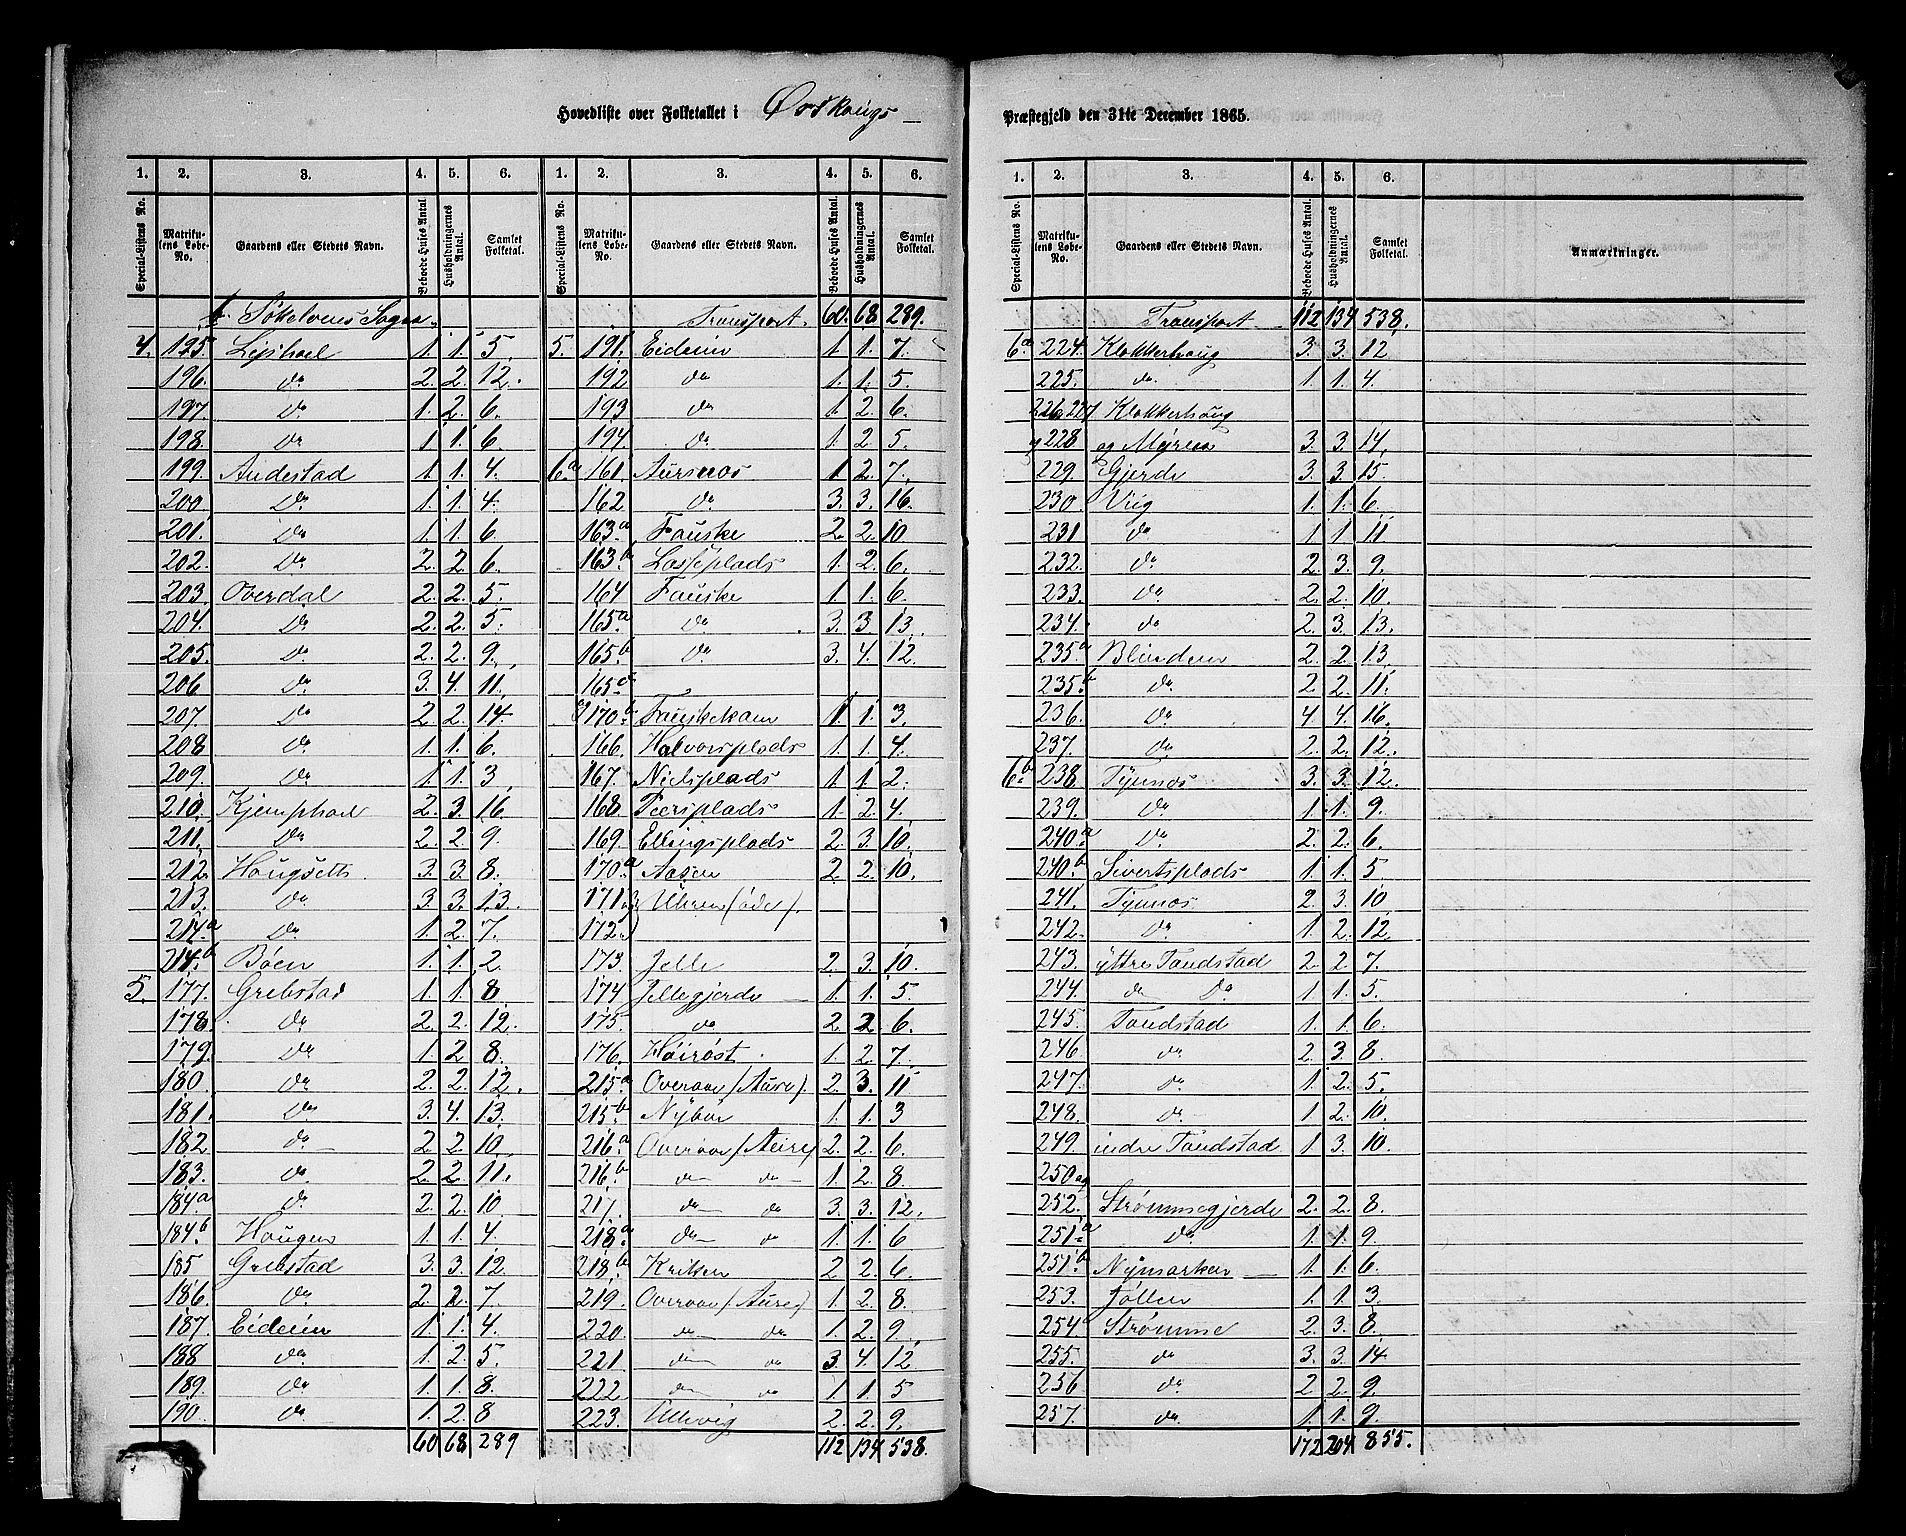 Hovedliste over Folketallet i Ørskougs
Præstegjeld den 31te December 1865.
1. 2. 3. 4. 5. 6.
Special-Listens No. Matrikulens Løbe-No. Gaardens eller Stedets Navn. Beboede Huses Antal. Husholdningernes Antal. Samlet Folketal.
b. Søkelvens Sogn
4. 195. 1. 1. 5.
196. do 2. 2. 12.
197. do 1. 2. 6.
198. do 1. 1. 6.
199. Andestad 1. 1. 4.
200 do 1. 1. 4.
201. do 1. 1. 6.
202. do 2. 2. 6.
203. Overdal 2. 2. 5.
204. do 2. 2. 5.
205. do 2. 2. 9.
206 do 3. 4. 11.
207. do 2. 2. 14.
208 do 1. 1. 6.
209. do 1. 1. 3.
210. Kjemphoel 2. 3. 16.
211. do 2. 2. 9.
212. Hougsetts 3. 3. 8.
213. do 3. 3. 13.
214a do 1. 2. 7.
214b Bøen 1. 1. 2.
5. 177. Grebstad 1. 1. 8
178. do 2. 2. 12.
179. do 1. 2 8.
180 do 2. 2. 12.
181. do 3. 4. 13.
182 do 2. 2. 10.
183. do 2. 2. 11.
184a do 2. 2. 10
184b Hougen 1. 1. 4
185 Grebstad 3. 3. 12
186. do 2. 2. 7.
187. Eideim 1. 1. 4.
188 do 1. 2. 5.
189. do 1. 1. 8.
190. do 1. 2. 8
60 68 289
1. 2. 3. 4. 5. 6.
Special-Listens No. Matrikulens Løbe-No. Gaardens eller Stedets Navn. Beboede Huses Antal. Husholdningernes Antal. Samlet Folketal.
Transport. 60. 68 289.
5. 191. Eideim 1. 1. 7.
192 do 1. 1. 5.
193 do 1. 2. 6.
194 do 1. 2. 5.
6a 161. Aursnos 1 2. 7.
162 do 3. 3. 16
163a Fauske 2. 2. 10
163b Lasseplads 1. 2. 6.
164 Fauske 1. 1. 6.
165a do 3. 3. 13.
165b do 3. 4. 12.
165c
og 170b Fauskekam 1. 1. 3.
166. Halvorsplads 1. 1. 4.
167. Nielsplads 1 1 2.
168. Peersplads 1. 2. 4.
169. Ellingsplads 2. 3. 10.
170a Aasen 2 2. 10.
171 og Uhren (øde).
172
173. Jelle 2. 3. 10.
174 Jellegjerde 1. 1. 5
175. do 2. 2 6.
176. Høirøst 1. 2. 7.
215a Overaae (Aure). 2. 3. 11
215b Nybøe 1. 1. 3
216a Overaae (Aure) 2. 2. 6.
216b do do 1. 2. 8
217. do do 3. 3. 12.
218a do do 1. 1. 6
218b Kriken 2 2. 6.
219. Overaae (Aure) 1. 2. 8.
220. do do 1. 2. 9.
221 do do 3. 4. 12
222 do do 1 1. 5
223. Ullevig 2. 2. 9.
112 134 538.
1. 2. 3. 4. 5. 6.
Special-Listens No. Matrikulens Løbe-No. Gaardens eller Stedets Navn. Beboede Huses Antal. Husholdningernes Antal. Samlet Folketal. Anmærkninger.
Transport 112 134 538.
6a 224. Klokkerhoug 3. 3. 12
225. do 1. 1. 4.
226, 227 Klokkerhoug
og 228 og Myren 3. 3. 14.
229. Gjerde 3. 3. 15.
230 Viig 1. 1. 6.
231 do 1 1. 11.
232. do 2. 3. 9.
233. do 2. 2. 10.
234. do 2. 3. 13.
235a Blinden 2. 2. 13.
235b do 2. 2. 11.
236 do 4. 4. 16.
237. do 2. 2. 12.
6b 238. Tynnos 3. 3. 12.
239. do 1. 1. 9.
240a do 2. 2. 6.
240b Sivertsplads 1. 1. 5
241. Tynnos 2. 3. 10
242. do 1. 2. 12
243. yttre Tandstad 2. 2. 7.
244. do do 1. 1. 5.
245. Tandstad 1. 1. 6.
246 do 2. 3. 8.
247. do 1. 2. 5.
248. do 1 2. 10.
249. indre Tandstad 1. 3. 10.
250 og
252. Strømmegjerde 2. 2. 8.
251a do 1. 1. 9.
251b Nymarken 1. 1. 6.
253. Jøllen 1. 1. 3.
254. Strømme 2. 3. 8.
255. do 3. 3. 14.
256 do 2. 2. 9.
257. do 1 1. 9.
172 204 855.